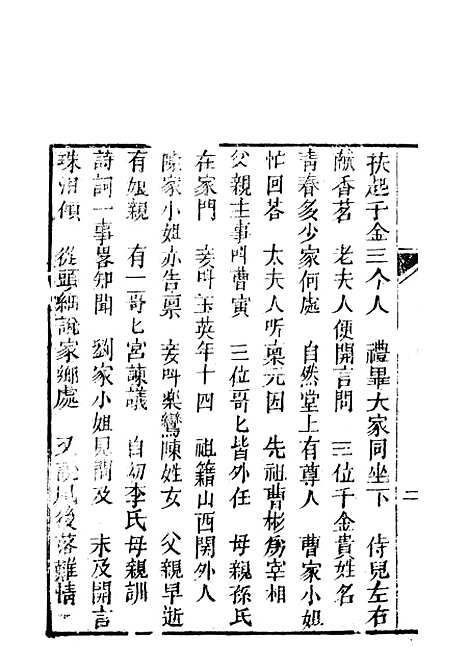 扶起千金三个人　禮畢大家同坐下　侍兒左右
献香茗　老夫人便開言問　三位千金貴姓名
青春多少家何處　自然堂上有尊人　曹家小姐
忙回答　太夫人听稟元因　先祖曹彬為宰相
父親主事叫曹寅　三位哥匕皆外任　母親孫氏
在家門　妾叫玉英年十四　祖籍山西関外人
陳家小姐亦告稟　妾叫樂鸞陳姓女　父親早逝
有娘親　有一哥匕宮諫議　自幼李氏母親訓
詩詞一事畧知聞　劉家小姐見問及　未及開言
珠淚傾　從頭細說家鄉處　又說 後落難情
二